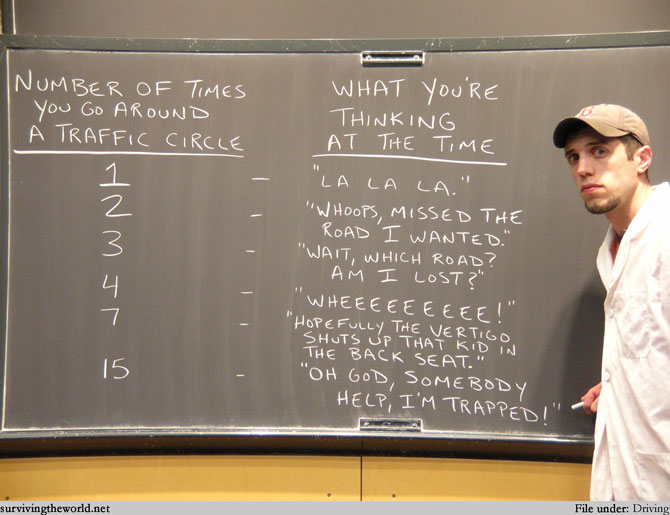 NUMBER OF TIMES
YOU GO AROUND
A TRAFFIC CIRCLE
WHAT YOU'RE
THINKING
AT THE TIME
1 – "LA LA LA."
2 – "WHOOPS, MISSED THE
ROAD I WANTED."
3 – "WAIT, WHICH ROAD?
AM I LOST?"
4 – "WHEEEEEEEEE!"
7 – "HOPEFULLY THE VERTIGO
SHUTS UP THAT KID IN
THE BACK SEAT."
15 – "OH GOD, SOMEBODY
HELP, I'M TRAPPED!"
survivingtheworld.net
File under: Driving